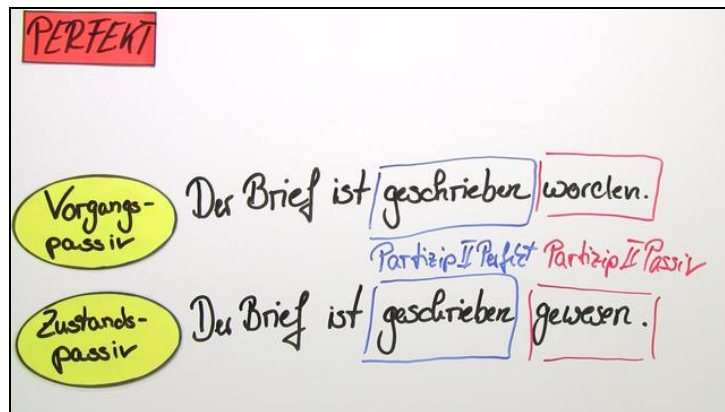 PERFEKT
Vorgangs-
passiv
Der Brief ist geschrieben worden.
Partizip II Perfekt Partizip II Passiv
Zustands-
passiv
Der Brief ist geschrieben gewesen.